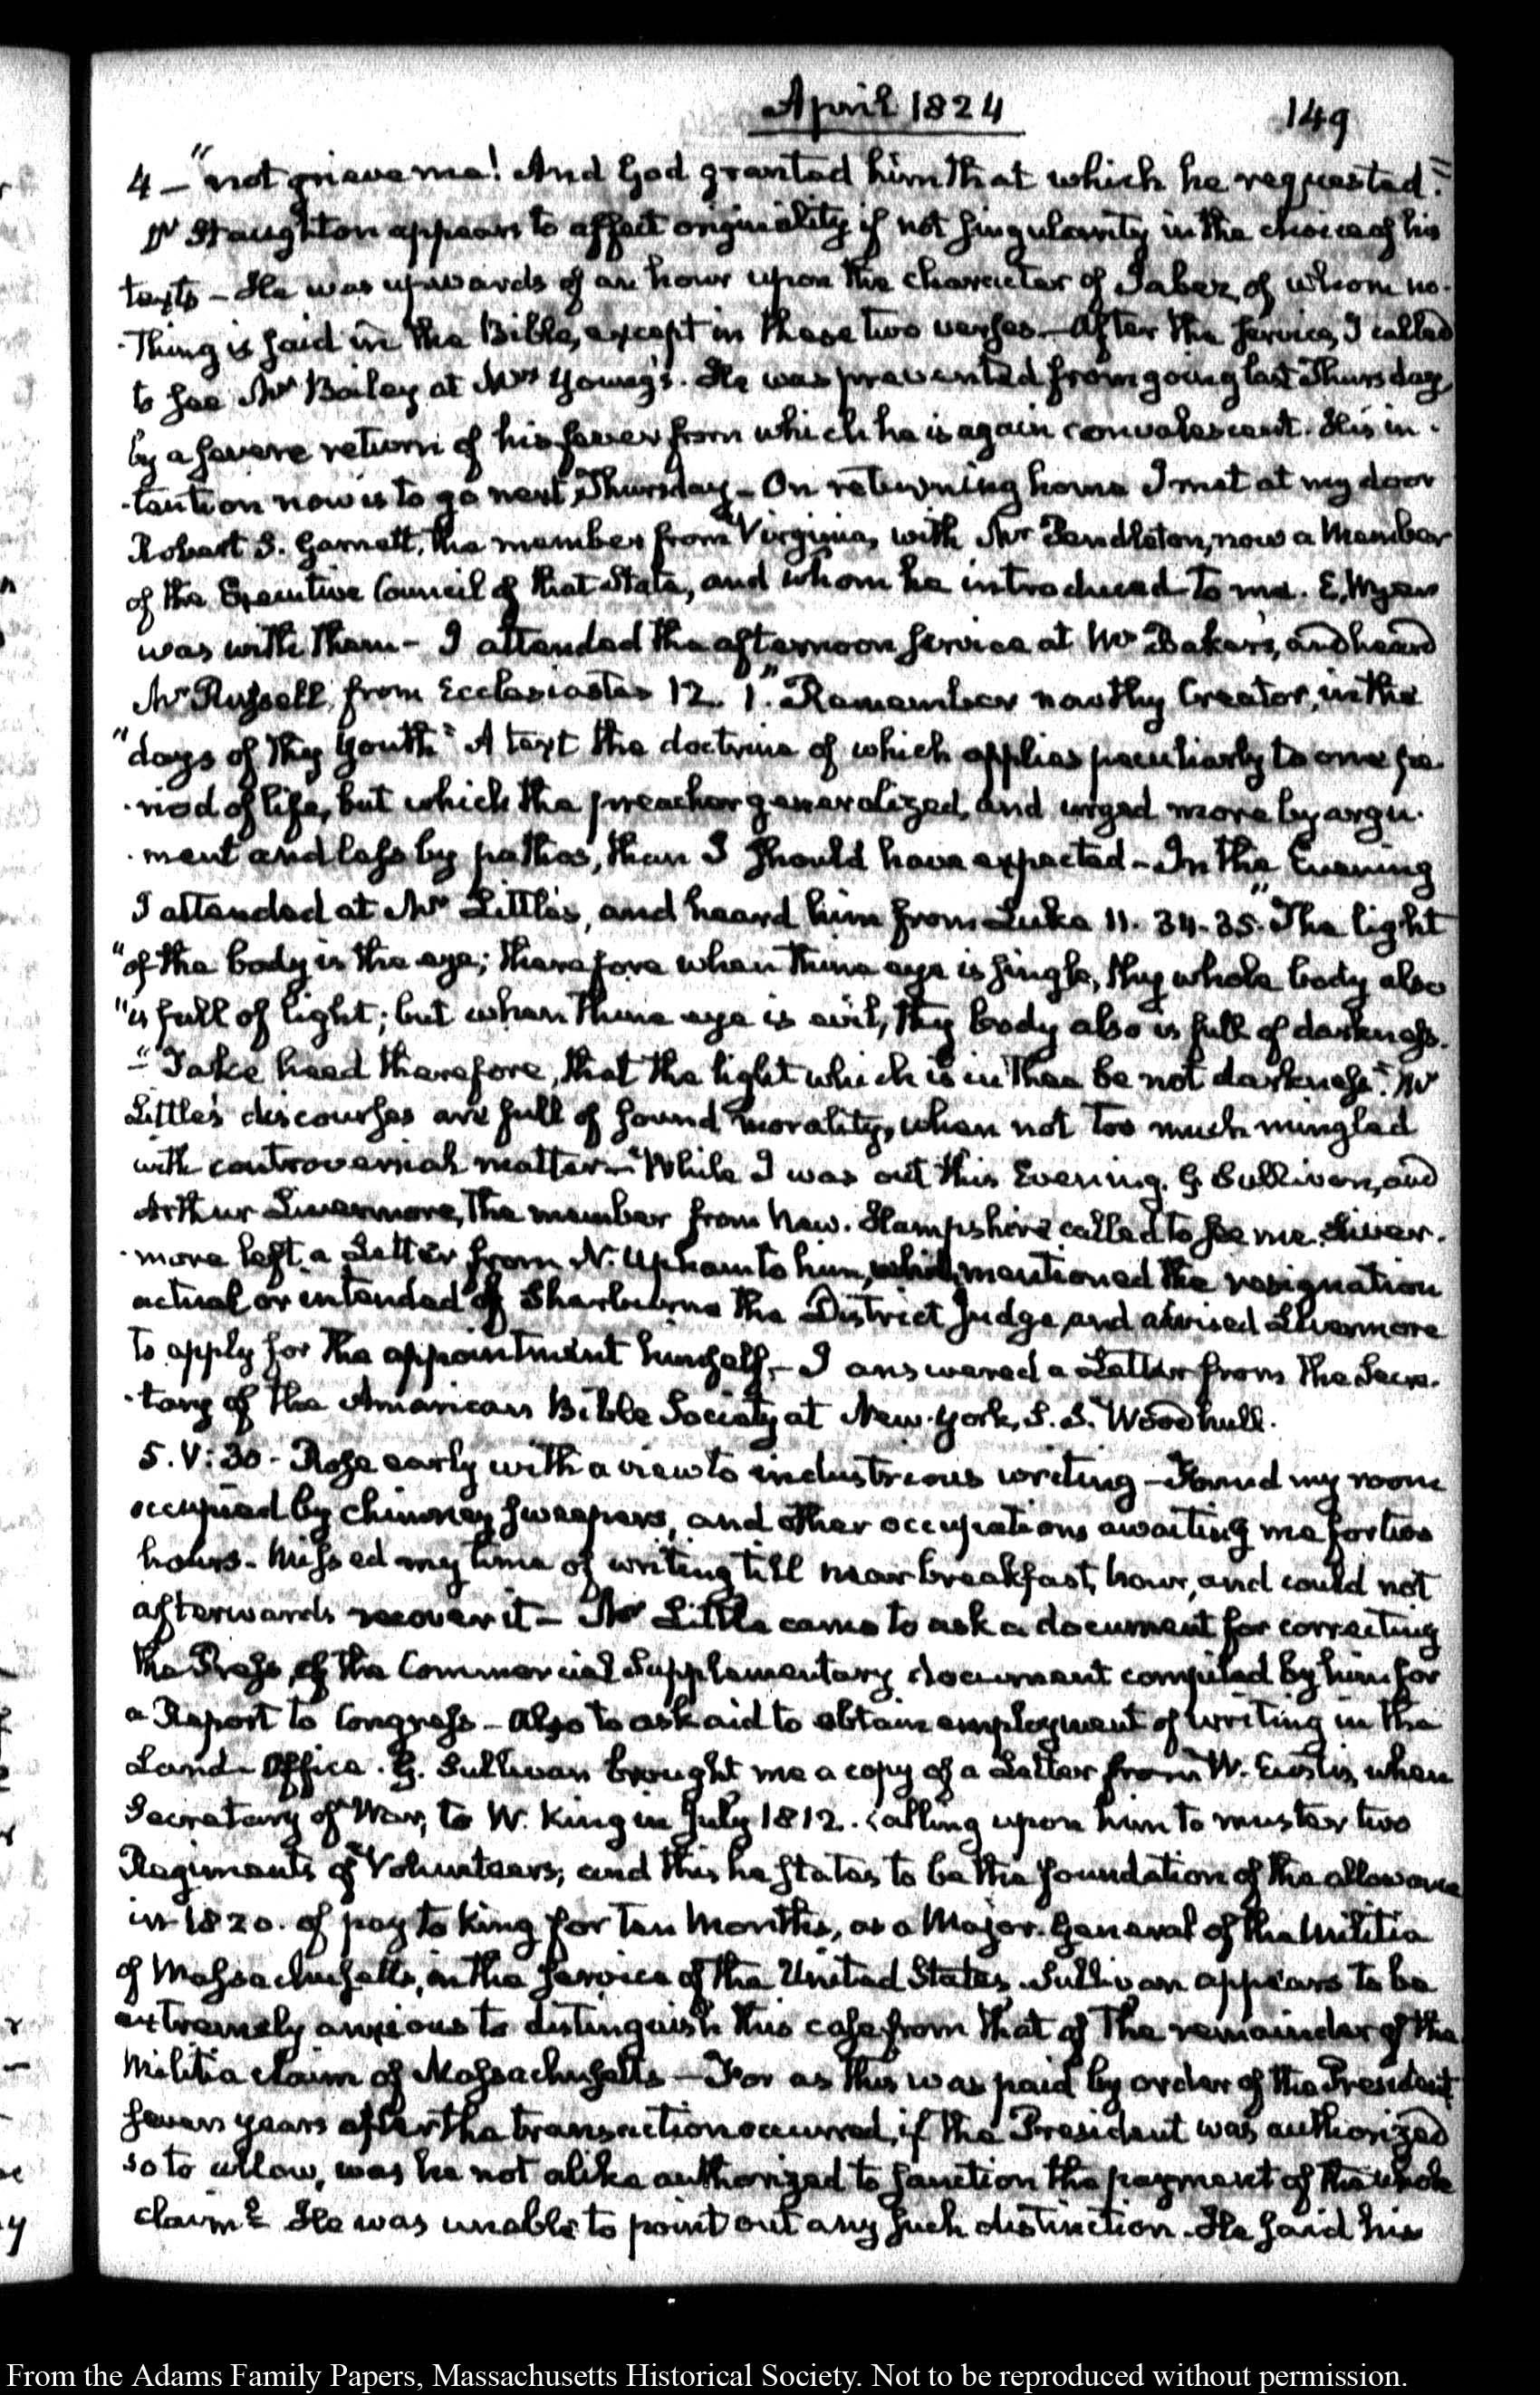 April 1824
149
4 — "not grieve me! And God granted him that which he requested."
Dr Staughton appears to affect originality if not singularity in the choice of his
texts — He was upwards of an hour upon the character of Jabez, of whom no-
-thing is said in the Bible, except in these two verses — After the service, I called
to see Mr Bailey at Mrs Young's. He was prevented from going last Thursday,
by a severe return of his fever from which he is again convalescent. His in-
-tention now is to go next Thursday — On returning home I met at my door
Robert S. Garnett, the member from Virginia, with Mr Pendleton, now a Member
of the Executive Council of that State, and whom he introduced to me. E. Wyer
was with them — I attended the afternoon service at Mr Baker's, and heard
Mr Russell, from Ecclesiastes 12. 1. "Remember now thy Creator, in the
"days of thy youth" A text the doctrine of which applies peculiarly to one pe-
-riod of life, but which the preacher generalized, and urged more by argu-
-ment and less by pathos, than I should have expected — In the Evening
I attended at Mr Little's, and heard him from Luke 11. 34-35. "The light
"of the body is the eye; therefore when thine eye is single, thy whole body also
"is full of light; but when thine eye is evil, thy body also is full of darkness.
"Take heed therefore, that the light which is in thee be not darkness". Mr
Little's discourses are full of sound morality, when not too much mingled
with controversial matter — While I was out this Evening, G. Sullivan, and
Arthur Livermore, the member from New-Hampshire called to see me. Liver-
-more left a Letter from N. Upham to him, which mentioned the resignation
actual or intended of Sherburne the District Judge, and advised Livermore
to apply for the appointment himself. — I answered a Letter from the Secre-
-tary of the American Bible Society at New-York, S. S. Woodhull.
5. V: 30 - Rose early with a view to industrious writing — Found my room
occupied by chimney sweepers, and other occupations awaiting me for two
hours - Missed my time of writing till near breakfast hour, and could not
afterwards recover it — Mr Little came to ask a document for correcting
the Press, of the Commercial Supplementary document compiled by him for
a Report to Congress — Also to ask aid to obtain employment of writing in the
Land-Office. G. Sullivan brought me a copy of a Letter from W. Eustis, when
Secretary of War, to W. King in July 1812. calling upon him to muster two
Regiments of Volunteers; and this he states to be the foundation of the allowance
in 1820. of pay to King for ten Months, as a Major-General of the Militia
of Massachusetts, in the service of the United States. Sullivan appears to be
extremely anxious to distinguish this case from that of the remainder of the
Militia claim of Massachusetts — For as this was paid by order of the President
seven years after the transaction occurred, if the President was authorized
so to allow, was he not alike authorized to sanction the payment of the whole
claim? He was unable to point out any such distinction. He said his
From the Adams Family Papers, Massachusetts Historical Society. Not to be reproduced without permission.